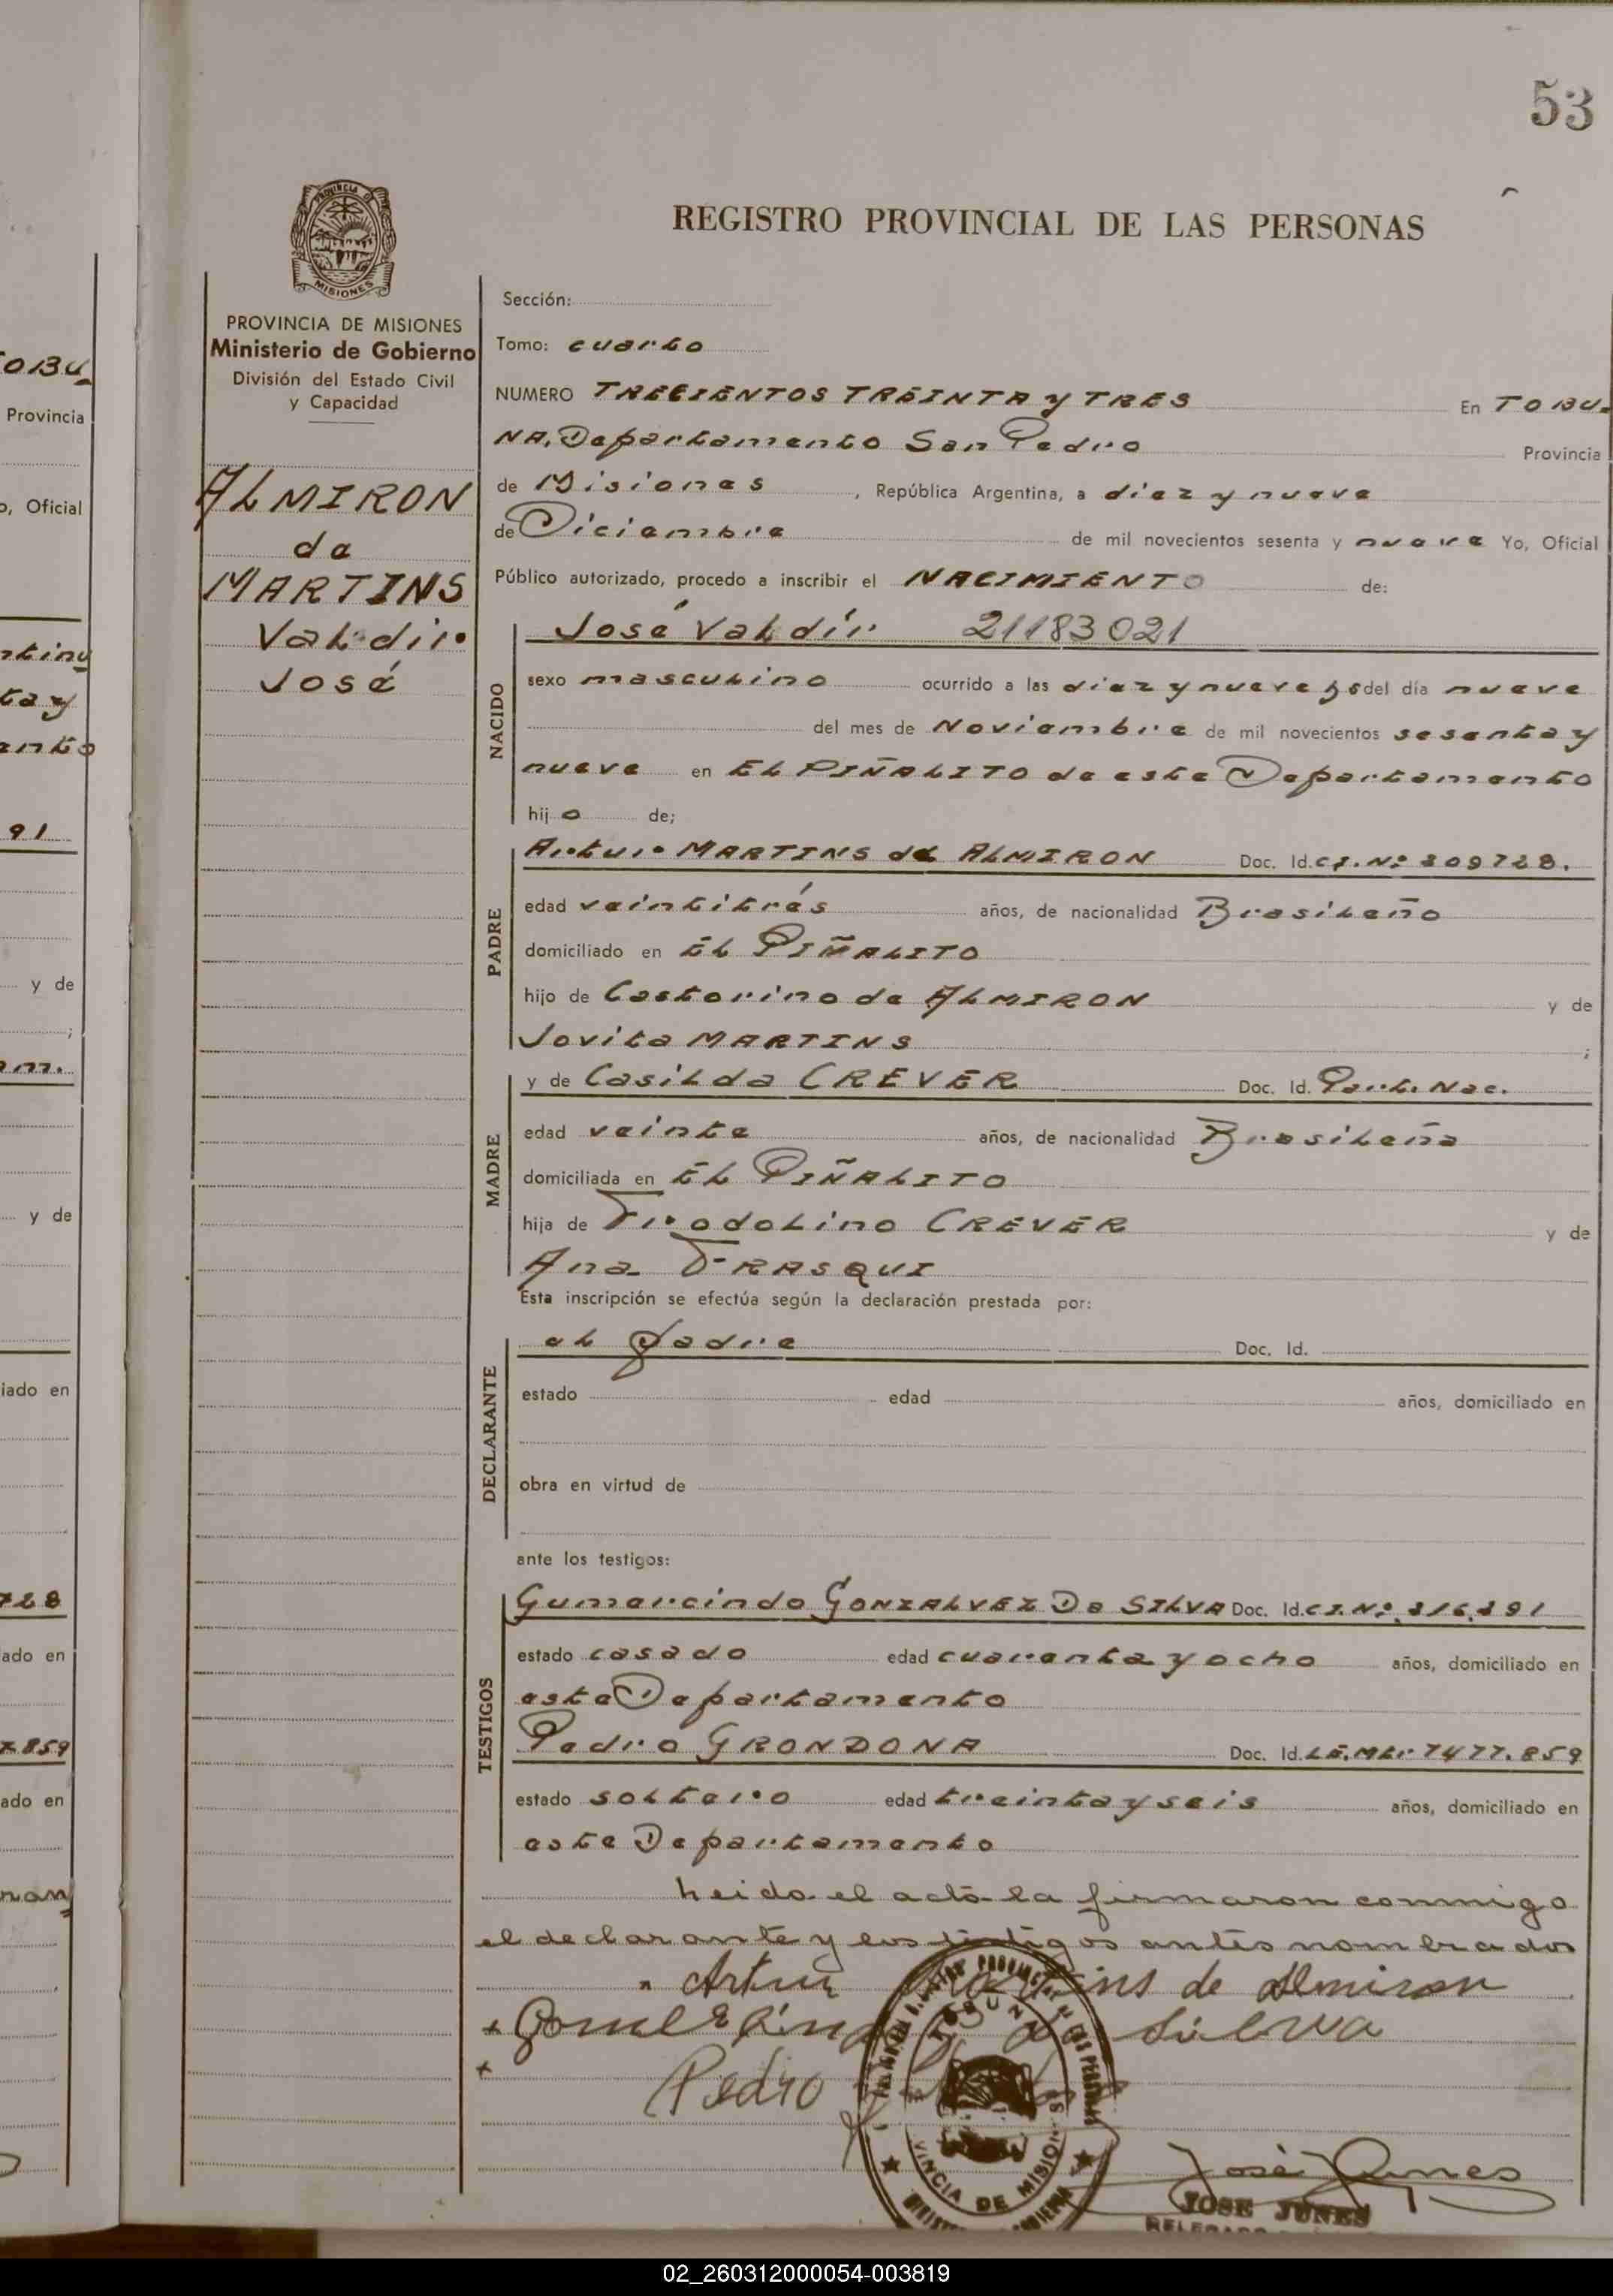 53
REGISTRO PROVINCIAL DE LAS PERSONAS
PROVINCIA DE
MISIONES
PROVINCIA DE MISIONES
Ministerio de Gobierno
División del Estado Civil
y Capacidad
ALMIRON
de
MARTINS
Valdir
José
Sección:
Tomo: cuarto
NUMERO TRECIENTOS TREINTA y TRES En TOBU-
NA, Departamento San Pedro Provincia
de Misiones, República Argentina, a diez y nueve
de Diciembre de mil novecientos sesenta y nueve Yo, Oficial
Público autorizado, procedo a inscribir el NACIMIENTO de:
NACIDO
José Valdír 21183021
sexo masculino ocurrido a las diez y nueve hs del día nueve
del mes de Noviembre de mil novecientos sesenta y
nueve en EL PIÑALITO de este Departamento
hijo de;
PADRE
Artur MARTINS de ALMIRON Doc. Id. C.I. Nº 309728.
edad veintitrés años, de nacionalidad Brasileño
domiciliado en EL PIÑALITO
hijo de Castorino de ALMIRON y de
Jovita MARTINS ;
MADRE
y de Casilda CREVER Doc. Id. Part. Nac.
edad veinte años, de nacionalidad Brasileña
domiciliada en EL PIÑALITO
hija de Frodolino CREVER y de
Ana FRASQUI
Esta inscripción se efectúa según la declaración prestada por:
DECLARANTE
el padre Doc. Id.
estado edad años, domiciliado en
obra en virtud de
ante los testigos:
TESTIGOS
Gumercindo GONZALVEZ De SILVA Doc. Id. C.I. Nº 316.391
estado casado edad cuarenta y ocho años, domiciliado en
este Departamento
Pedro GRONDONA Doc. Id. L.E. 7477.859
estado soltero edad treinta y seis años, domiciliado en
este Departamento
Leido el acta la firmaron conmigo
el declarante y los testigos antes nombrados
Artur Martins de Almiron
da Silva
Pedro
PROVINCIA DE MISIONES
José Junes
JOSE JUNES
TOBU-
Provincia
Oficial
y de
y de
iado en
728
ado en
859
ado en
02_260312000054-003819